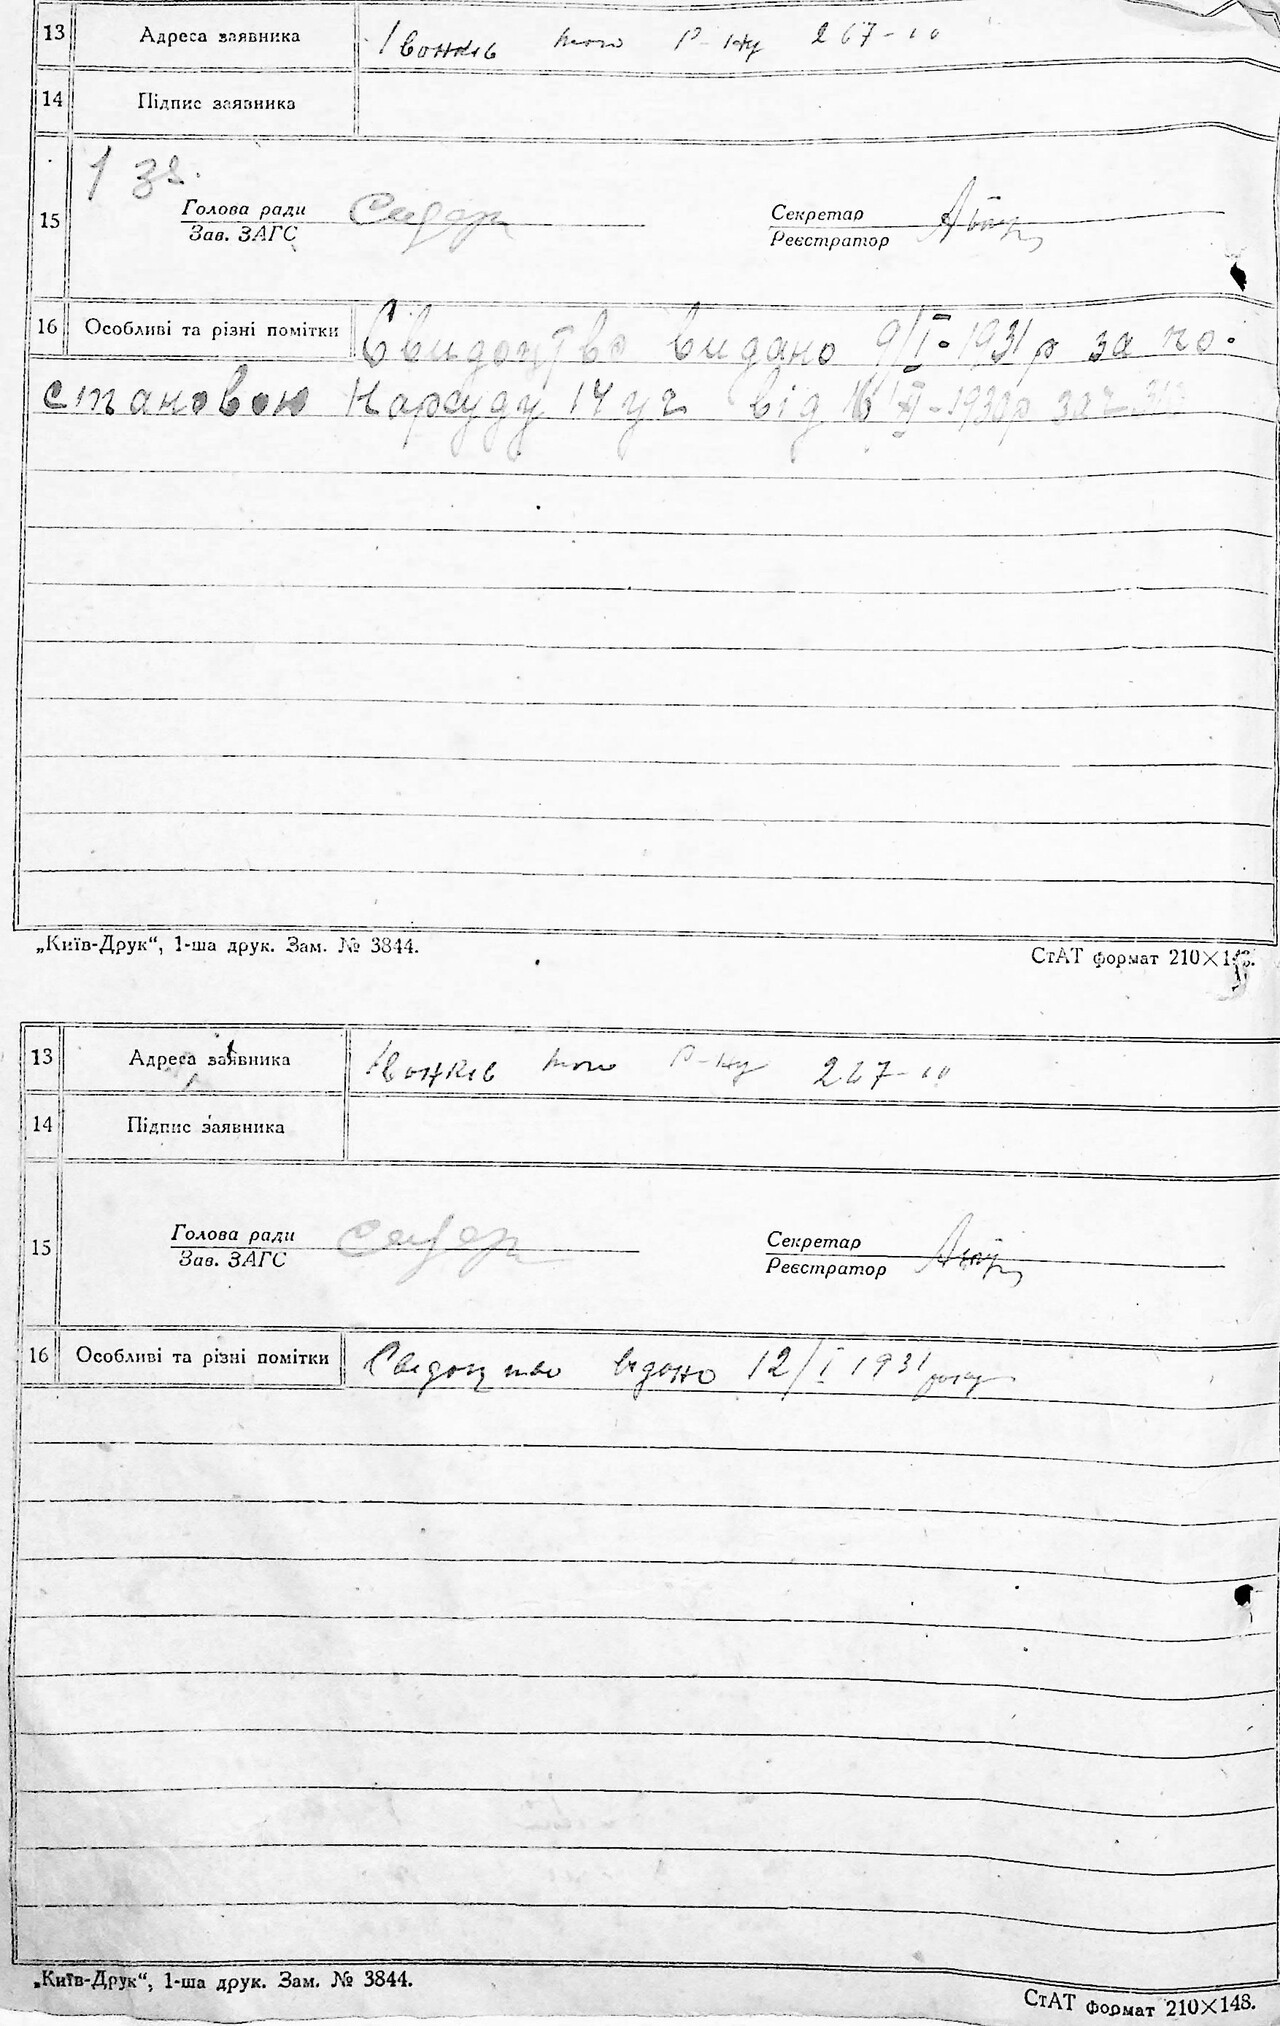 13 Адреса заявника Іванків того р-ну 267-10
14 Підпис заявника
1 зг.
15 Голова ради
Зав. ЗАГС
Секретар
Реєстратор
16 Особливі та різні помітки Свидоцтво видано 9/I-1931 р за по-
становою Нарсуду 14 уч від 16
„Київ-Друк“, 1-ша друк. Зам. № 3844.
СтАТ формат 210×148.
13 Адреса заявника Іванків того р-ну 267-10
14 Підпис заявника
15 Голова ради
Зав. ЗАГС
Секретар
Реєстратор
16 Особливі та різні помітки Свідоцтво видано 12/I 1931 року
„Київ-Друк“, 1-ша друк. Зам. № 3844.
СтАТ формат 210×148.